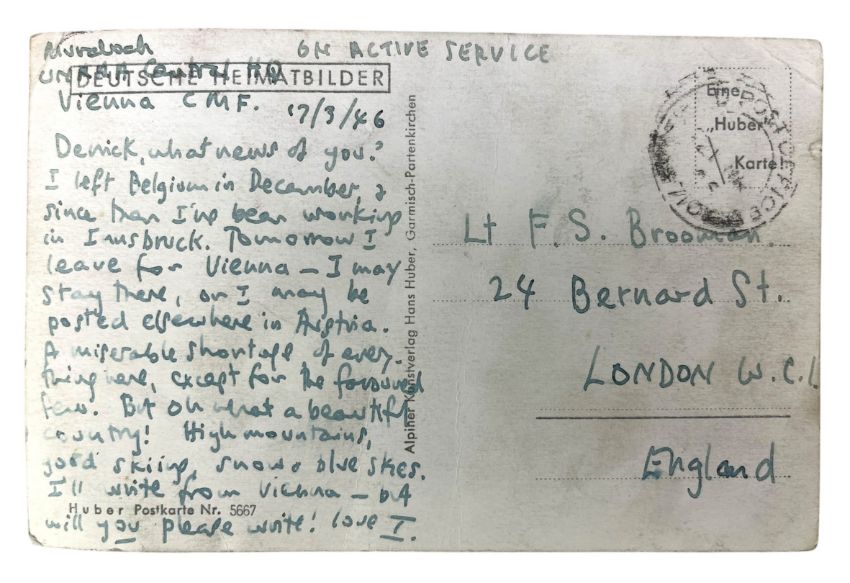 ON ACTIVE SERVICE
UNRRA Central HQ
DEUTSCHE HEIMATBILDER
Vienna CMF. 17/3/46
Derrick, what news of you?
I left Belgium in December &
since then I've been working
in Innsbruck. Tomorrow I
leave for Vienna – I may
stay there, or I may be
posted elsewhere in Austria.
A miserable shortage of every-
thing here, except for the favoured
few. But oh what a beautiful
country! High mountains,
good skiing, snow & blue skies.
I'll write from Vienna – but
will you please write! love I.
Huber Postkarte Nr. 5667
Alpiner Kunstverlag Hans Huber, Garmisch-Partenkirchen
Eine
„Huber"
Karte!
POST OFFICE
Lt F.S. Brooman.
24 Bernard St.
LONDON W.C.1.
England